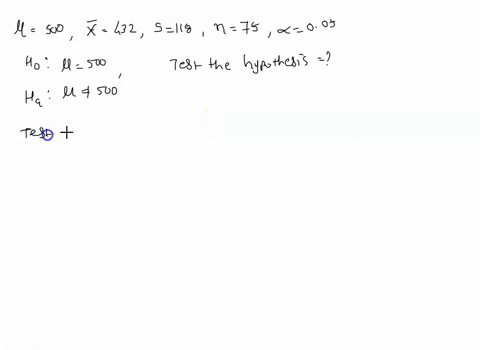 μ = 500, x̄ = 432, S = 118, n = 75, α = 0.05
H₀ : μ = 500, Test the hypothesis = ?
Hₐ : μ ≠ 500
Test t